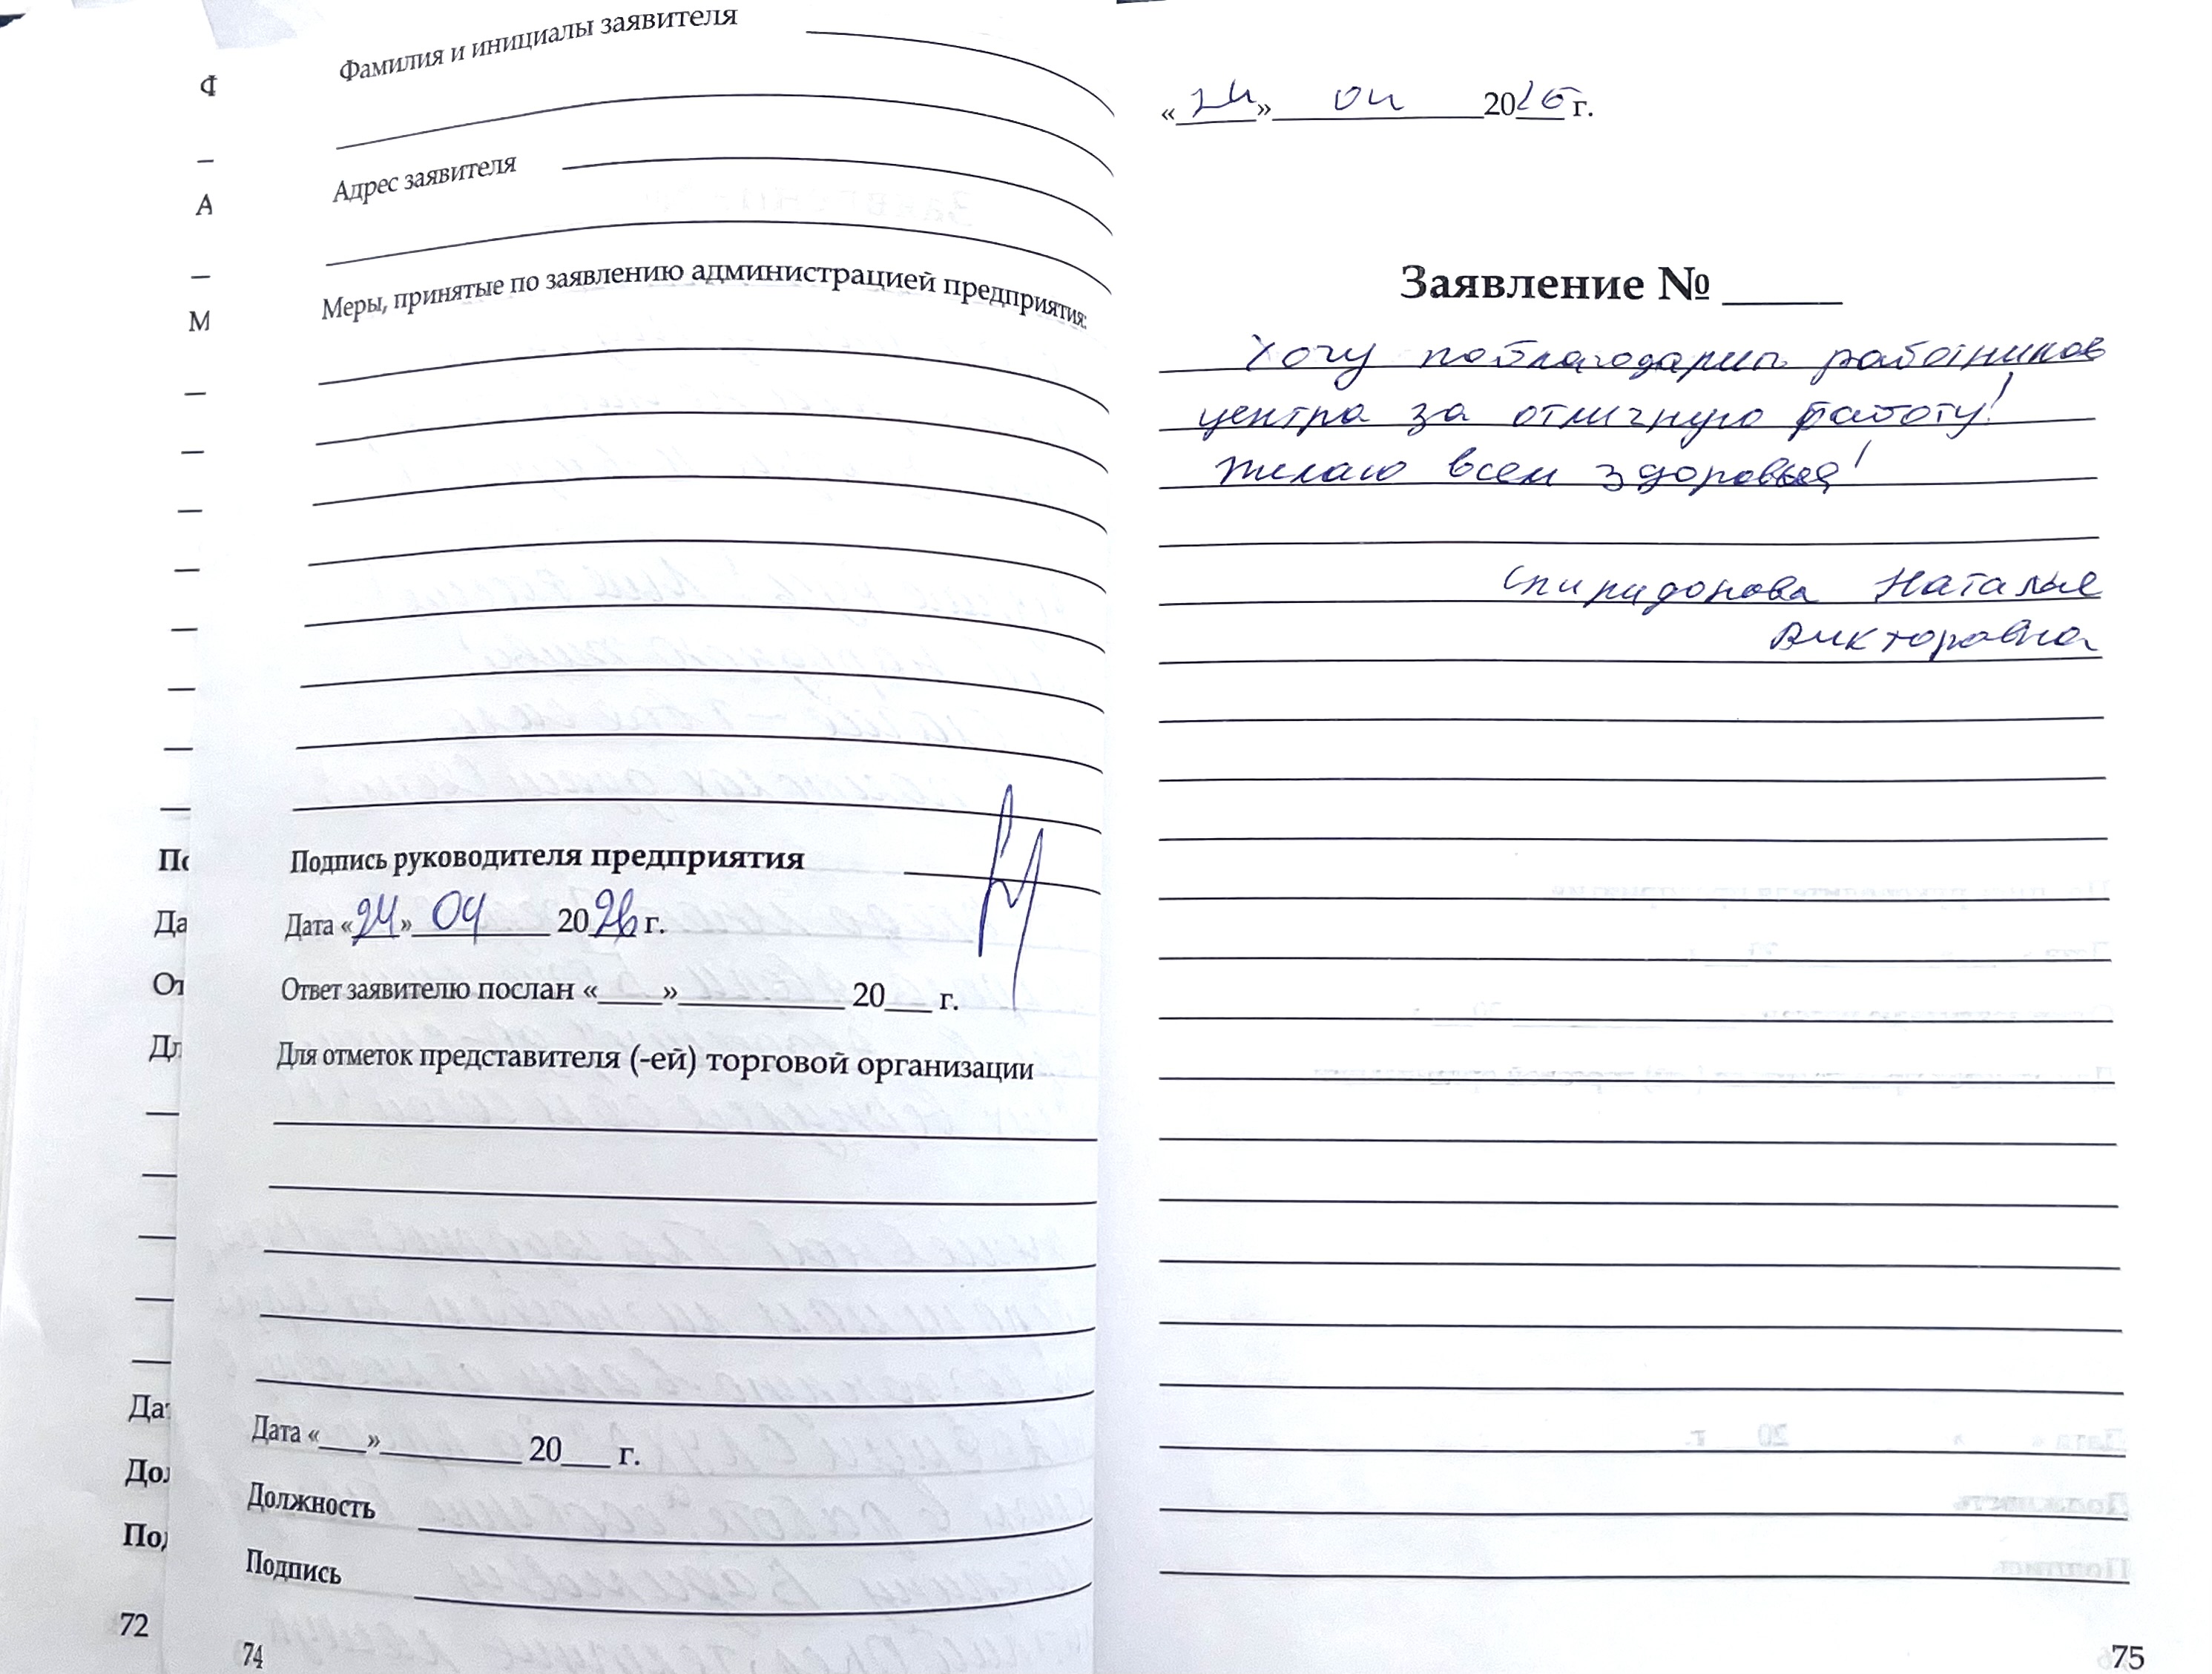 Ф
А
М
По
Да
От
Дл
Дат
Дол
Под
72
Фамилия и инициалы заявителя
Адрес заявителя
Меры, принятые по заявлению администрацией предприятия:
Подпись руководителя предприятия
Дата «24» 04 2026 г.
Ответ заявителю послан «____»__________ 20___ г.
Для отметок представителя (-ей) торговой организации
Дата «___»_________ 20___ г.
Должность
Подпись
74
«24» 04 2026 г.
Заявление № _____
Хочу поблагодарить работников
центра за отличную работу!
Желаю всем здоровья!
Спиридонова Наталья
Викторовна
75